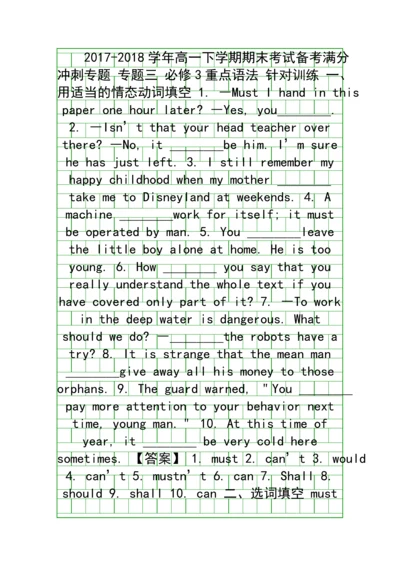 2017-2018 学年高一下学期期末考试备考满分
冲刺专题 专题三 必修 3 重点语法 针对训练 一、
用适当的情态动词填空 1. —Must I hand in this
paper one hour later? —Yes, you_______.
2. —Isn't that your head teacher over
there? —No, it _______be him. I'm sure
he has just left. 3. I still remember my
happy childhood when my mother _______
take me to Disneyland at weekends. 4. A
machine _______work for itself; it must
be operated by man. 5. You _______leave
the little boy alone at home. He is too
young. 6. How _______ you say that you
really understand the whole text if you
have covered only part of it? 7. —To work
in the deep water is dangerous. What
should we do? —_______the robots have a
try? 8. It is strange that the mean man
_______give away all his money to those
orphans. 9. The guard warned, "You _______
pay more attention to your behavior next
time, young man." 10. At this time of
year, it _______ be very cold here
sometimes. 【答案】 1. must 2. can't 3. would
4. can't 5. mustn't 6. can 7. Shall 8.
should 9. shall 10. can 二、选词填空 must